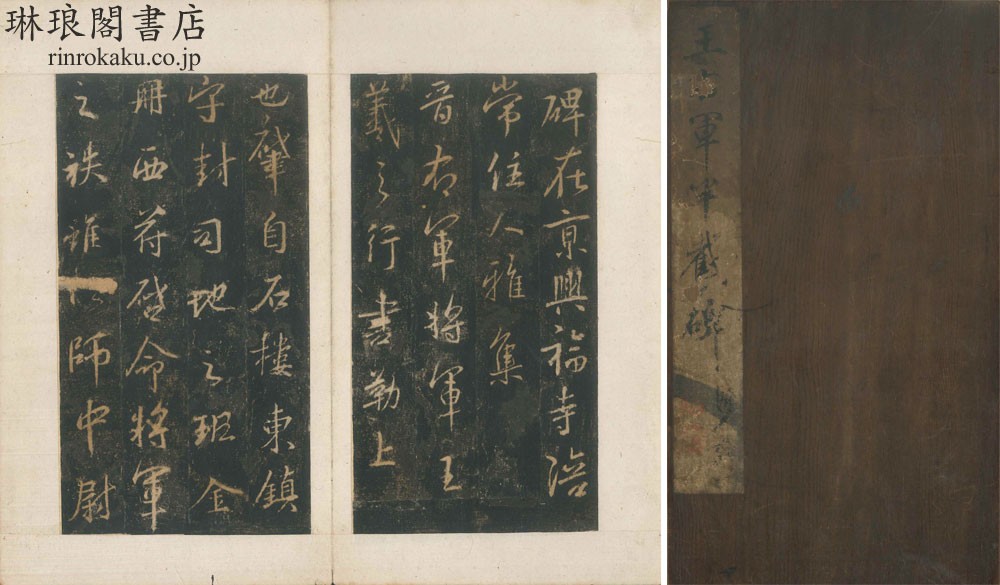 琳琅閣書店
rinrokaku.co.jp
碑在京興福寺陪
常住人雅集
晋右軍將軍王
羲之行書勒上
也肇自石樓東鎮
字封司地之班金
冊西符啓命將軍
之袟雖師中尉
王右軍半截碑